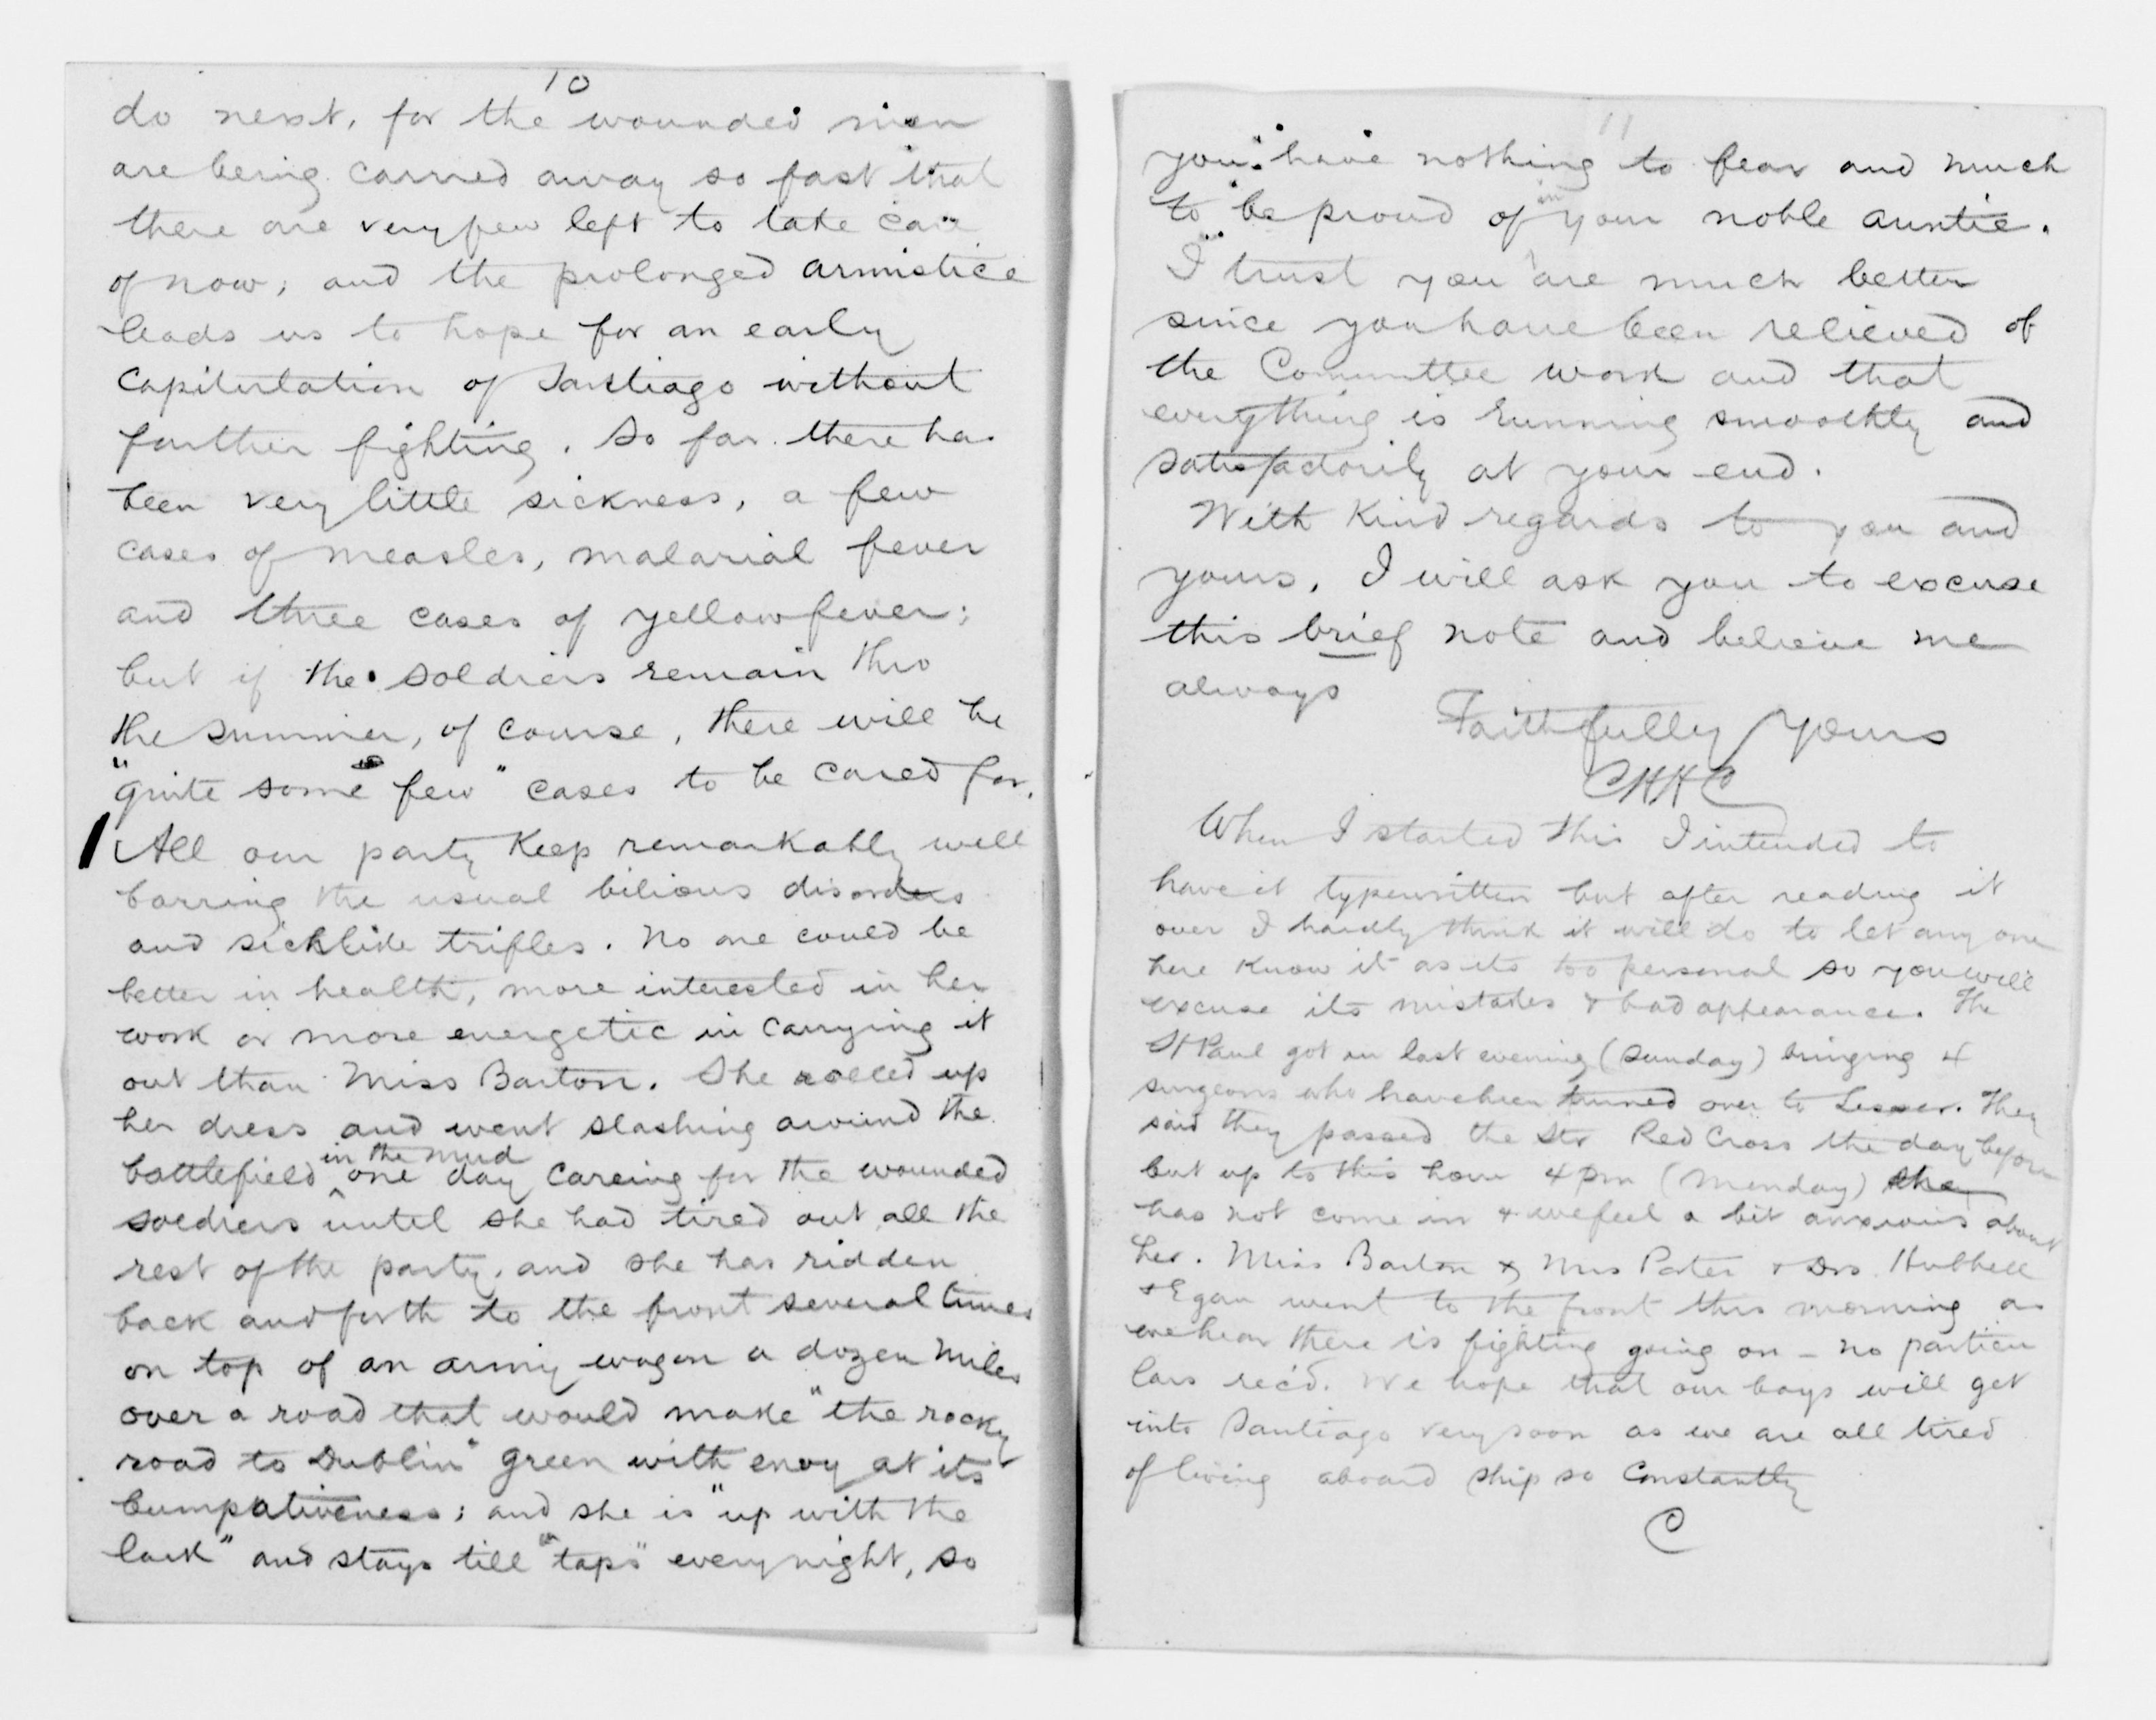 10
do next, for the wounded men
are being carried away so fast that
there are very few left to take care
of now; and the prolonged armistice
leads us to hope for an early
capitulation of Santiago without
further fighting. So far there has
been very little sickness, a few
cases of measles, malarial fever
and three cases of yellow fever;
but if the soldiers remain thro
the summer, of course, there will be
"quite some few" cases to be cared for.
All our party keep remarkably well
barring the usual bilious disorders
and sichlike trifles. No one could be
better in health, more interested in her
work or more energetic in carrying it
out than Miss Barton. She rolled up
her dress and went slashing around the
in the mud
battlefield ^ one day careing for the wounded
soldiers until she had tired out all the
rest of the party, and she has ridden
back and forth to the front several times
on top of an army wagon a dozen miles
over a road that would make "the rocky
road to Dublin" green with envy at its
bumpativeness; and she is "up with the
lark" and stays till "taps" every night, so
11
you have nothing to fear and much
to be proud of in your noble auntie.
I trust you are much better
since you have been relieved of
the Committee work and that
everything is running smoothly and
satisfactorily at your end.
With kind regards to you and
yours, I will ask you to excuse
this brief note and believe me
always
Faithfully Yours
CHHC
When I started this I intended to
have it typewritten but after reading it
over I hardly think it will do to let any one
here know it as its too personal so you will
excuse its mistakes & bad appearance. The
St Paul got in last evening (Sunday) bringing 4
surgeons who have been turned over to Lesser. They
said they passed the Str Red Cross the day before
but up to this hour 4 pm (Monday) she
has not come in & we feel a bit anxious about
her. Miss Barton & Mrs Porter & Drs Hubbell
& Egan went to the front this morning as
we hear there is fighting going on - no particu
lars rec'd. We hope that our boys will get
into Santiago very soon as we are all tired
of living aboard ship so constantly
C